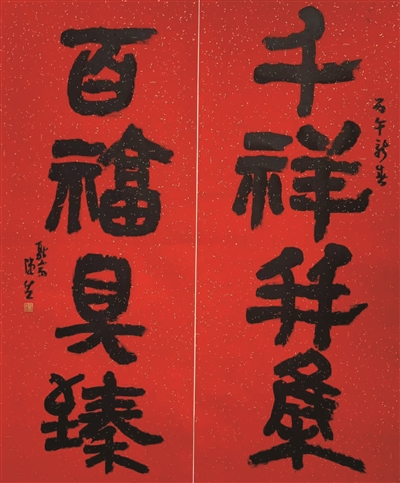 丙午新春
千祥并集
百福具臻